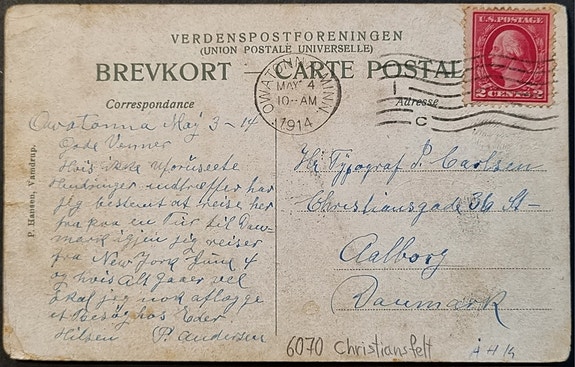 VERDENSPOSTFORENINGEN
(UNION POSTALE UNIVERSELLE)
BREVKORT — CARTE POSTAL
Correspondance
Adresse
P. Hansen, Vamdrup.
U.S. POSTAGE
2 CENTS 2
OWATONNA, MINN.
MAY 4
10-AM
1914
1
C
Owatonna Maj 3-14
Gode Venner
Hvis ikke Uforuseete
Hindringer indtræffer har
jeg bestemt at reise her
fra paa en Tur til Dan-
mark igjen jeg reiser
fra New York June 4
og hvis Alt gaaer vel
skal jeg nok aflægge
et Besøg hos Eder
Hilsen P. Andersen
Hr Typograf P. Carlsen
Christiansgade 36 St-
Aalborg
Danmark
6070 Christiansfelt